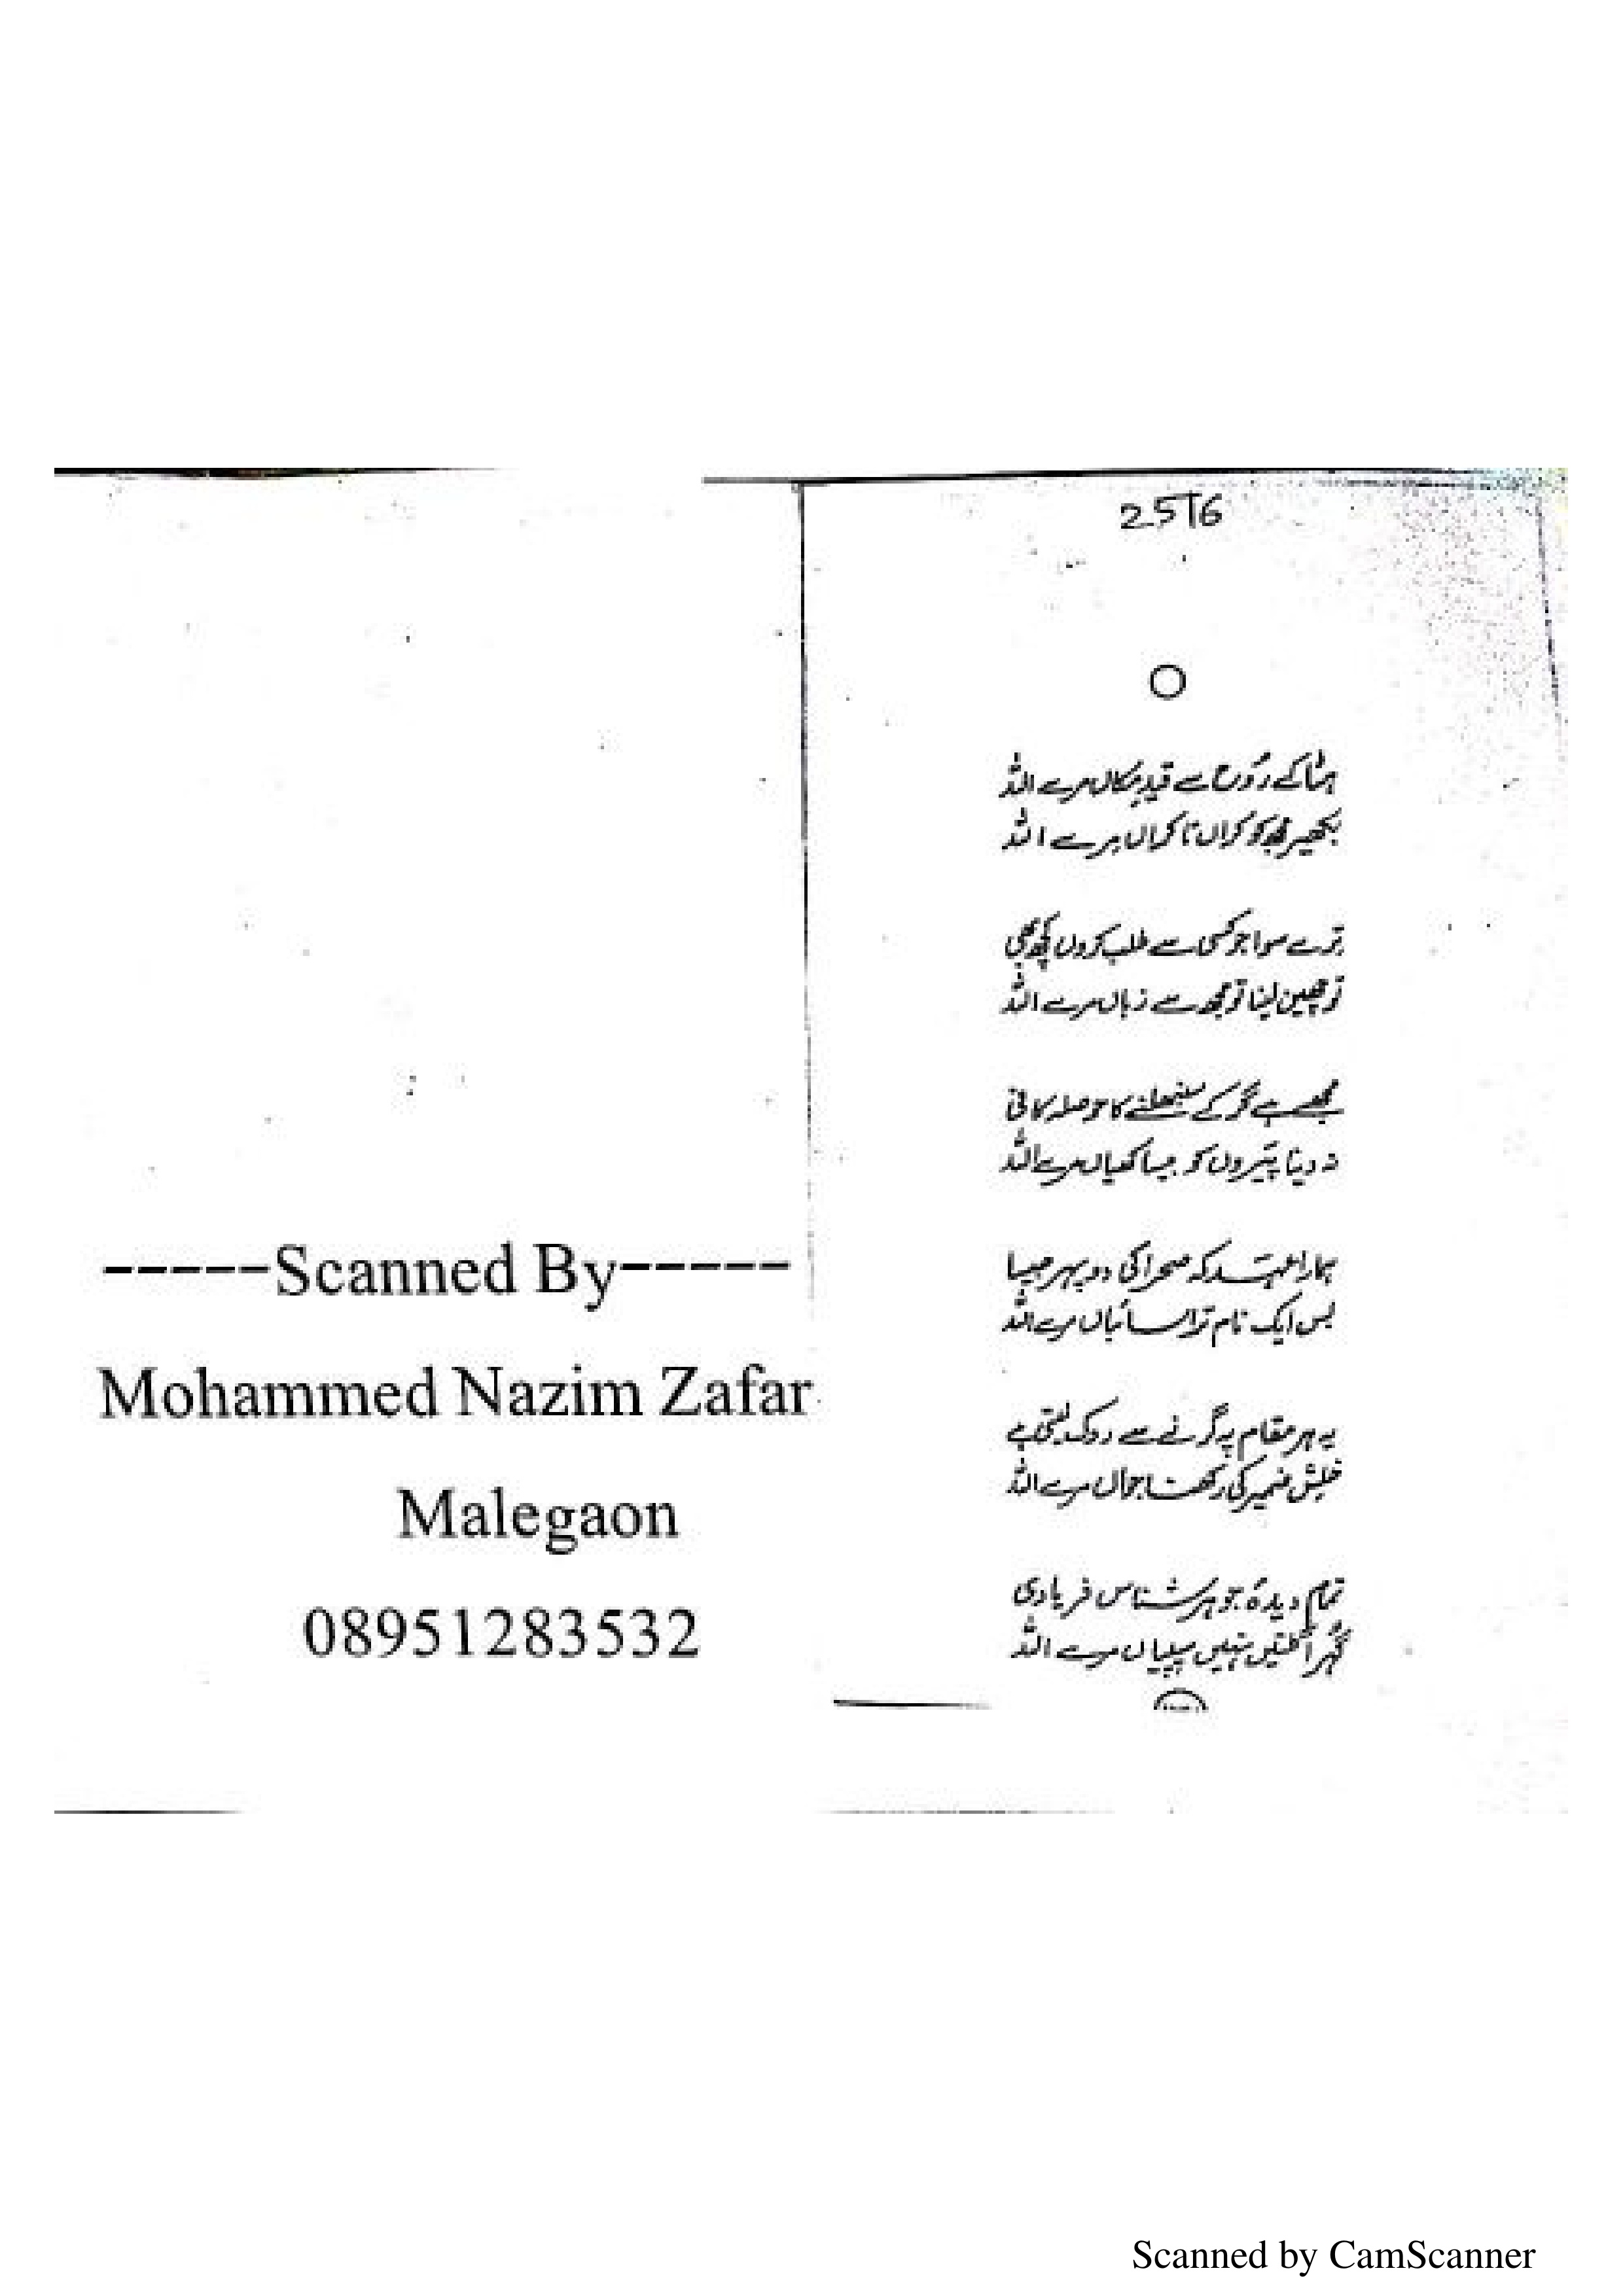 2516
ہٹا کے رُوح سے قیدِ مکاں مرے اللہ
بکھیر مجھ کو کراں تا کراں مرے اللہ
ترے سوا جو کسی سے طلب کروں کچھ بھی
تو چھین لینا تو مجھ سے زباں مرے اللہ
مجھے ہے گر کے سنبھلنے کا حوصلہ کافی
نہ دینا پَیروں کو بیساکھیاں مرے اللہ
ہمارا عہد کہ صحرا کی دوپہر جیسا
بس ایک نام ترا سائباں مرے اللہ
یہ ہر مقام پہ گرنے سے روک لیتی ہے
خلش ضمیر کی رکھنا جواں مرے اللہ
تمام دیدۂ جوہر شناس فریادی
گُہر اُگلتیں نہیں سیپیاں مرے اللہ
-----Scanned By-----
Mohammed Nazim Zafar
Malegaon
08951283532
Scanned by CamScanner